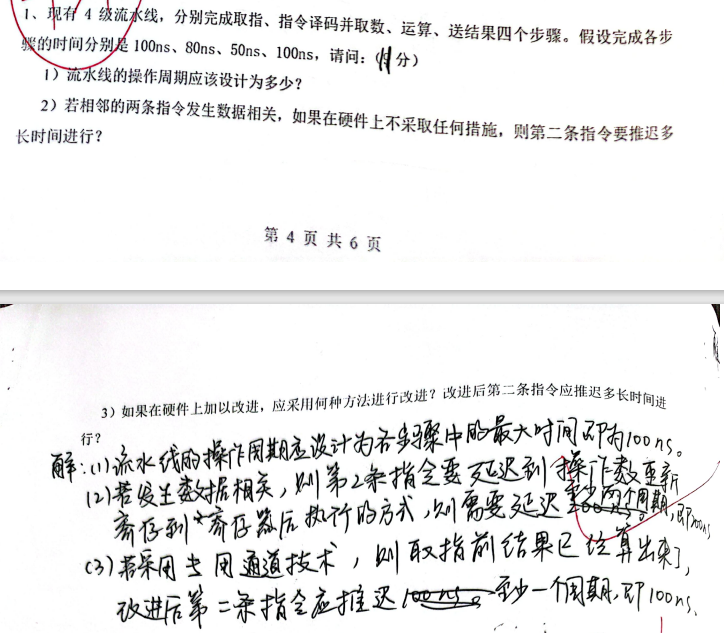 1、现有 4 级流水线，分别完成取指、指令译码并取数、运算、送结果四个步骤。假设完成各步
骤的时间分别是 100ns、80ns、50ns、100ns，请问：（ 分）
1）流水线的操作周期应该设计为多少？
2）若相邻的两条指令发生数据相关，如果在硬件上不采取任何措施，则第二条指令要推迟多
长时间进行？
第 4 页 共 6 页
3）如果在硬件上加以改进，应采用何种方法进行改进？改进后第二条指令应推迟多长时间进
行？
解：(1)流水线的操作周期应设计为各步骤中的最大时间即为100ns。
(2)若发生数据相关，则第2条指令要延迟到操作数重新
寄存到寄存器后执行的方式，则需要延迟 两个周期，即200ns
(3)若采用专用通道技术，则取指前结果已经算出来了，
改进后第二条指令应推迟 100ns。至少一个周期，即100ns.